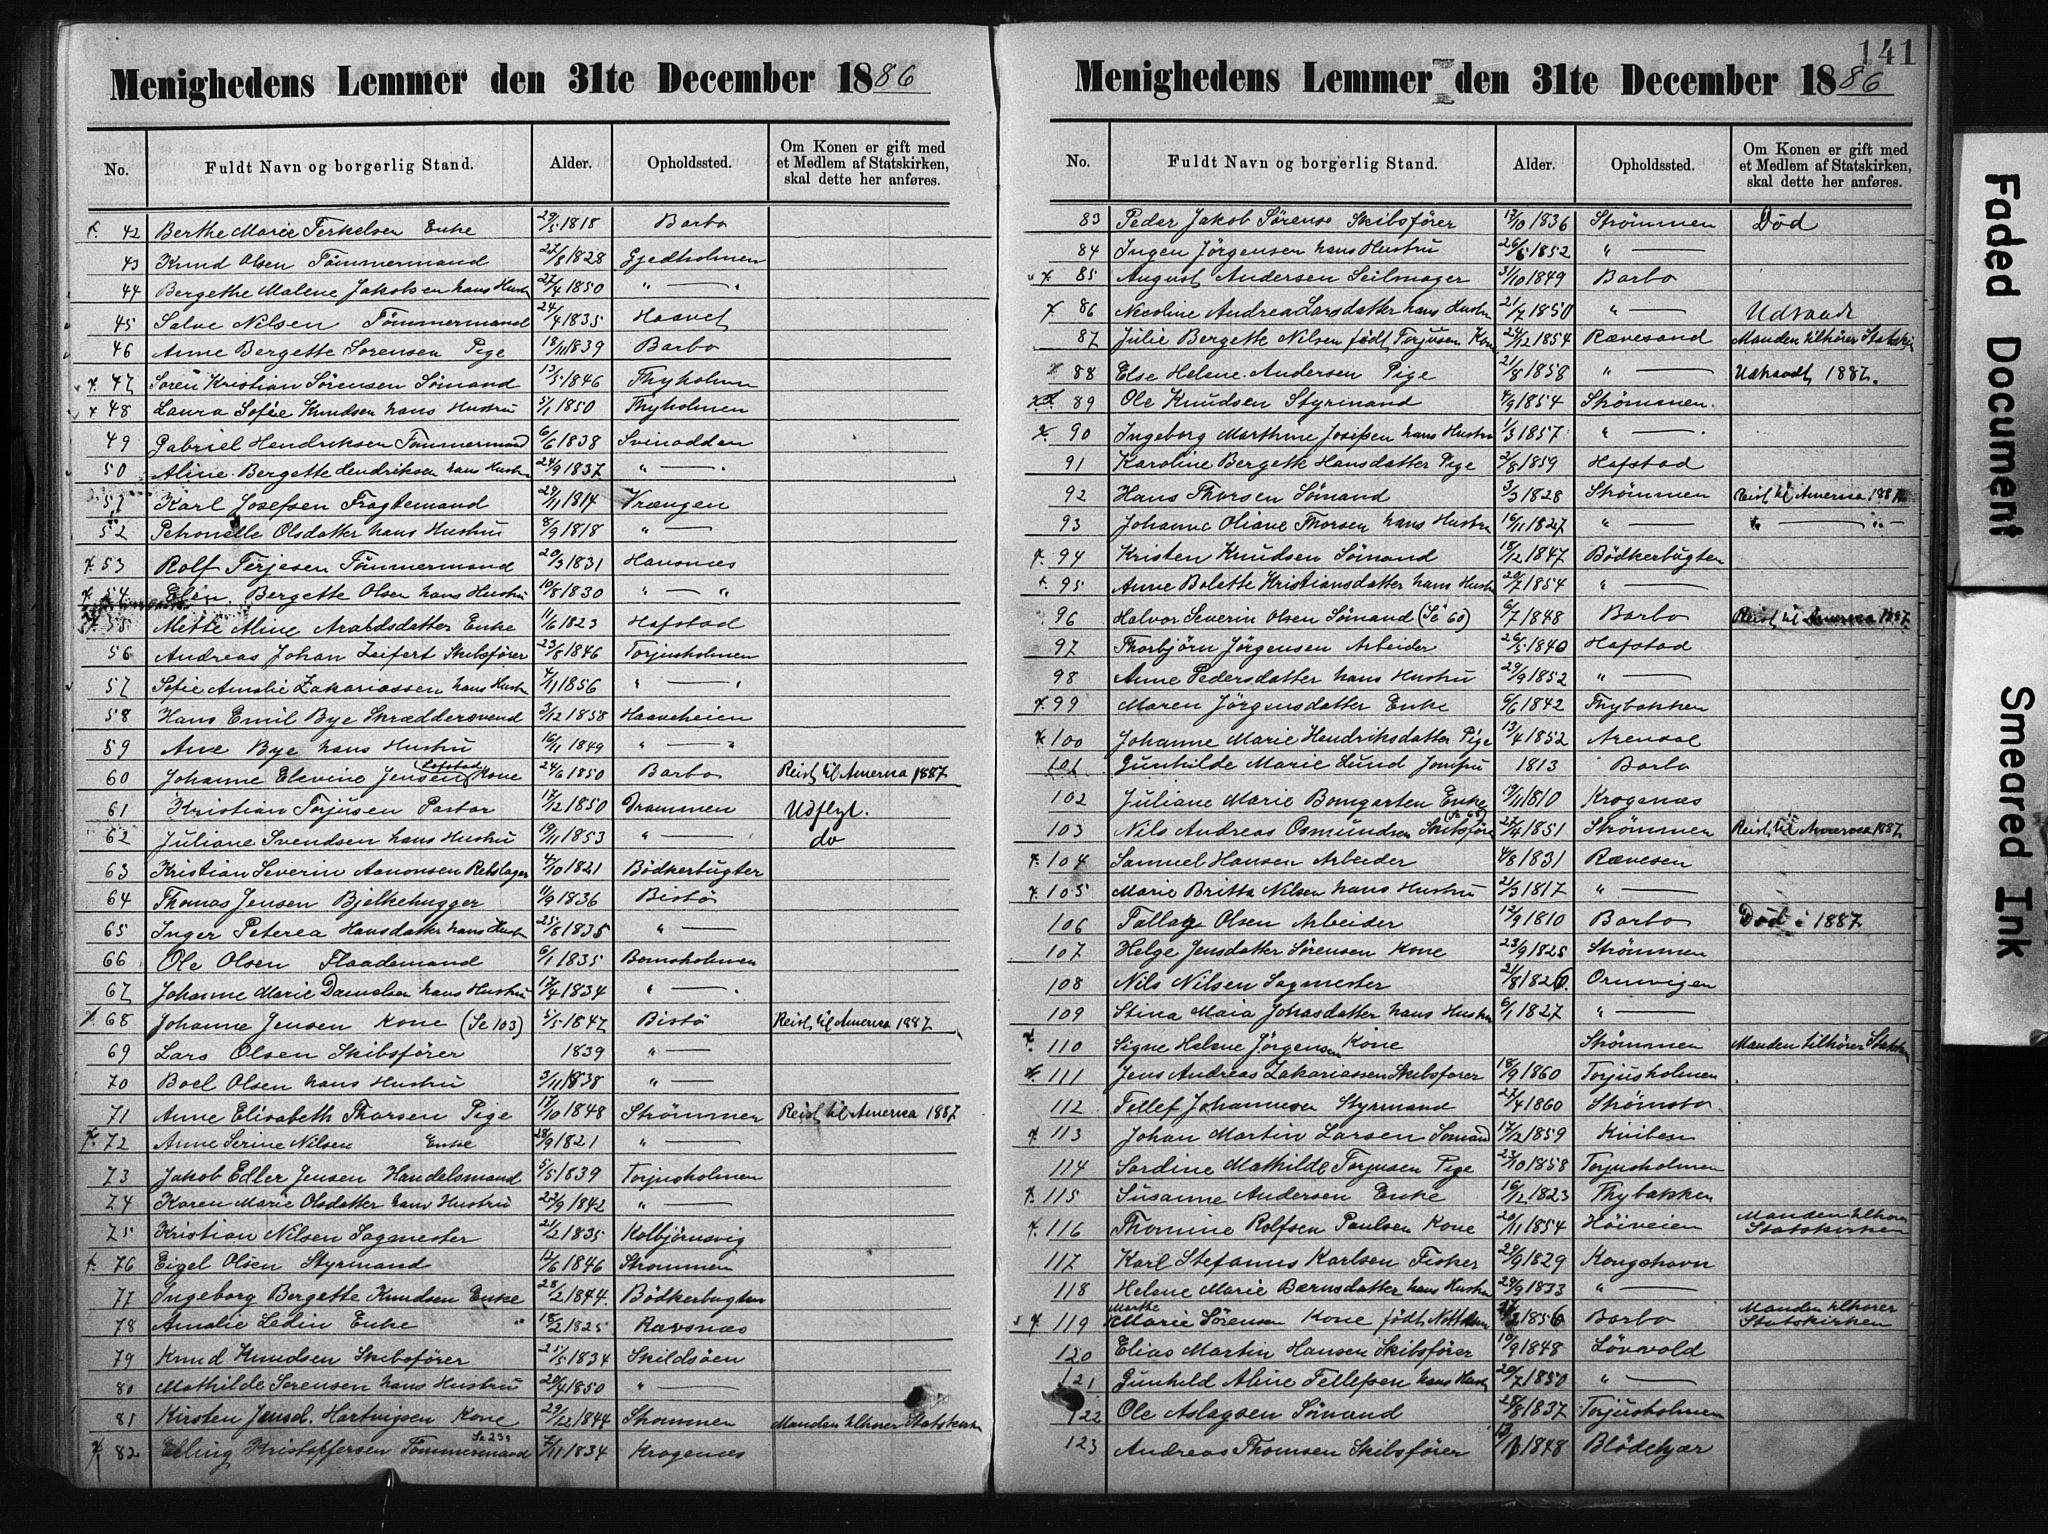 Menighedens Lemmer den 31te December 1886
No. Fuldt Navn og borgerlig Stand. Alder. Opholdssted. Om Konen er gift med et Medlem af Statskirken, skal dette her anføres.
42 Berthe Marie Terkelsen Enke 29/5 1818 Barbo
43 Knud Olsen Tømmermand 27/8 1828 Gjedholmen
44 Bergethe Malene Jakobsen hans Hustru 27/4 1850 " — "
45 Salve Nilsen Tømmermand 24/4 1835 Haavet
46 Anne Bergette Sorensen Pige 18/11 1839 Barbo
47 Søren Kristian Sörensen Sømand 13/5 1846 Thyholmen
48 Laura Sofie Knudsen hans Hustru 5/1 1850 Thyholmen
49 Gabriel Hendriksen Tømmermand 6/6 1838 Svinodden
50 Aline Bergette Hendriksen hans Hustru 24/9 1837 " — "
51 Karl Josefsen Fragtemand 29/11 1814 Vrængen
52 Petronelle Olsdatter hans Hustru 8/9 1818 " —
53 Rolf Terjesen Tömmermand 20/3 1831 Havsnæs
54 Elen Bergette Olsen hans Hustru 10/8 1830 " — "
55 Mette Aline Enke 11/6 1823 Hafstad
56 Andreas Johan Zeifert Skibsfører 23/5 1846 Torjusholmen
57 Sofie Amalie Zakariassen hans Hustru 4/11 1856 " — "
58 Hans Emil Bye Skræddersvend 3/12 1858 Haaveheien
59 Ane Bye hans Hustru 16/11 1849 " — "
60 Johanne Elevine Jensen Kone 24/6 1850 Barbo Reist til America 1887
61 Kristian Torjusen Pastor 17/2 1850 Drammen Udflyt.
62 Juliane Svendsen hans Hustru 19/11 1853 " — do
63 Kristian Severin Aanonsen Rebslager 4/10 1821 Bödkerbugten
64 Thomas Jensen Bjelkehugger 11/9 1836 Bistö
65 Inger Peterea Hansdatter hans Hustru 25/8 1835 " —
66 Ole Olsen Flaademand 6/1 1835 Bomsholmen
67 Johanne Marie Danielsen hans Hustru 17/4 1834 " — "
68 Johanne Jensen Kone (Se 103) 5/5 1847 Bistö Reist til America 1887
69 Lars Olsen Skibsfører 1839 " —
70 Boel Olsen hans Hustru 3/11 1838 " —
71 Anne Elisabeth Thorsen Pige 17/10 1848 Strömmen Reist til America 1887
72 Anne Serine Nilsen Enke 28/9 1821 " —
73 Jakob Edler Jensen Handelsmand 5/5 1839 Torjusholmen
74 Karen Marie Olsdatter hans Hustru 22/9 1842 " —
75 Kristian Nilsen Sagmester 21/2 1835 Kolbjörnsvig
76 Eigel Olsen Styrmand 12/6 1846 Strommen
77 Ingeborg Bergette Knudsen Enke 28/2 1844 Bödkerbugten
78 Amalie Ledin Enke 18/2 1825 Ravsnæs
79 Knud Knudsen Skibsfører 21/5 1834 Skildsöen
80 Mathilde Sorensen hans Hustru 20/4 1850 " —
81 Kirsten Jensd. Hartvigsen Kone 29/12 1844 Strommen Manden tilhører Statskirken
82 Elling Kristoffersen Tömmermand 7/11 1834 Krogenæs
141
Menighedens Lemmer den 31te December 1886
No. Fuldt Navn og borgerlig Stand. Alder. Opholdssted. Om Konen er gift med et Medlem af Statskirken, skal dette her anføres.
83 Peder Jakob Sørense Skibsfører 12/10 1836 Strömmen Död
84 Ingen Jörgensen hans Hustru 26/6 1852 " —
85 August Andersen Seilmager 31/10 1849 Barbo
86 Nicoline Andrea Larsdatter hans Hustru 21/7 1850 " — Udtraadt
87 Julie Bergette Nilsen født Torjusen Kone 24/12 1854 Rævesand Manden tilhører Statskir
88 Else Helene Andersen Pige 21/8 1858 " — Udtraadt 1887.
89 Ole Knudsen Styrmand 4/9 1854 Strömmen
90 Ingeborg Marthine Josefsen hans Hustru 1/3 1857 " —
91 Karoline Bergette Hansdatter Pige 2/8 1859 Hafstad
92 Hans Thorsen Sömand 3/3 1828 Strömmen Reist til America 1887
93 Johanne Oliane Thorsen hans Hustru 16/11 1827 " — " —
94 Kristen Knudsen Sömand 18/12 1847 Bödkerbugten
95 Anne Bolette Kristiansdatter hans Hustru 20/7 1854 " —
96 Halvor Severin Olsen Sömand (Se 60) 6/7 1848 Barbo Reist til America 1887
97 Thorbjörn Jörgensen Arbeider 26/5 1840 Hafstad
98 Anne Pedersdatter hans Hustru 29/9 1852 " —
99 Maren Jörgensdatter Enke 6/6 1842 Thybakken
100 Johanne Marie Hendriksdatter Pige 13/4 1852 Arendal
101 Gunhilde Marie Lund Jomfru 1813 Barbo
102 Juliane Marie Bomgarten Enke 19/11 1810 Krogenæs
103 Nils Andreas Osmundsen Skibsfører (Se 68) 27/4 1851 Strömmen Reist til America 1887
104 Samuel Hansen Arbeider 4/8 1831 Rævesen
105 Marie Britta Nilsen hans Hustru 2/3 1817 " —
106 Tallag Olsen Arbeider 12/9 1810 Barbo Död i 1887
107 Helge Jensdatter Sörensen Kone 23/9 1825 Strömmen
108 Nils Nilsen Sagmester 21/8 1826 Ormvigen
109 Stina Maia Johasdatter hans Hustru 6/1 1827 " —
110 Signe Helene Jörgensen Kone Strömmen Manden tilhører Statskirken
111 Jens Andreas Zakariassen Skibsfører 18/9 1860 Torjusholmen
112 Tellef Johannesen Styrmand 27/4 1860 Strömsbo
113 Johan Martin Larsen Sømand 17/2 1859 Kviben
114 Sardine Mathilde Torjusen Pige 23/10 1858 Torjusholmen
115 Susanne Andersen Enke 16/12 1823 Thybakken
116 Thomine Rolfsen Paulsen Kone 20/11 1854 Höiveien Manden tilhører Statskirken
117 Karl Stefanus Karlsen Fisker 29/9 1829 Kongshavn
118 Helene Marie Berntsdatter hans Hustru 29/9 1833 " —
119 Marthe Marie Sørensen Kone født 1856 Barbo Manden tilhører Statskirken
120 Elias Martin Hansen Skibsfører 10/9 1848 Lövvold
121 Gunhild Aline Tellefsen hans Hustru 20/7 1850 " —
122 Ole Aslagsen Sömand 28/8 1837 Torjusholmen
123 Andreas Thomsen Skibsfører 1848 Blödekjær
Faded Document
Smeared Ink